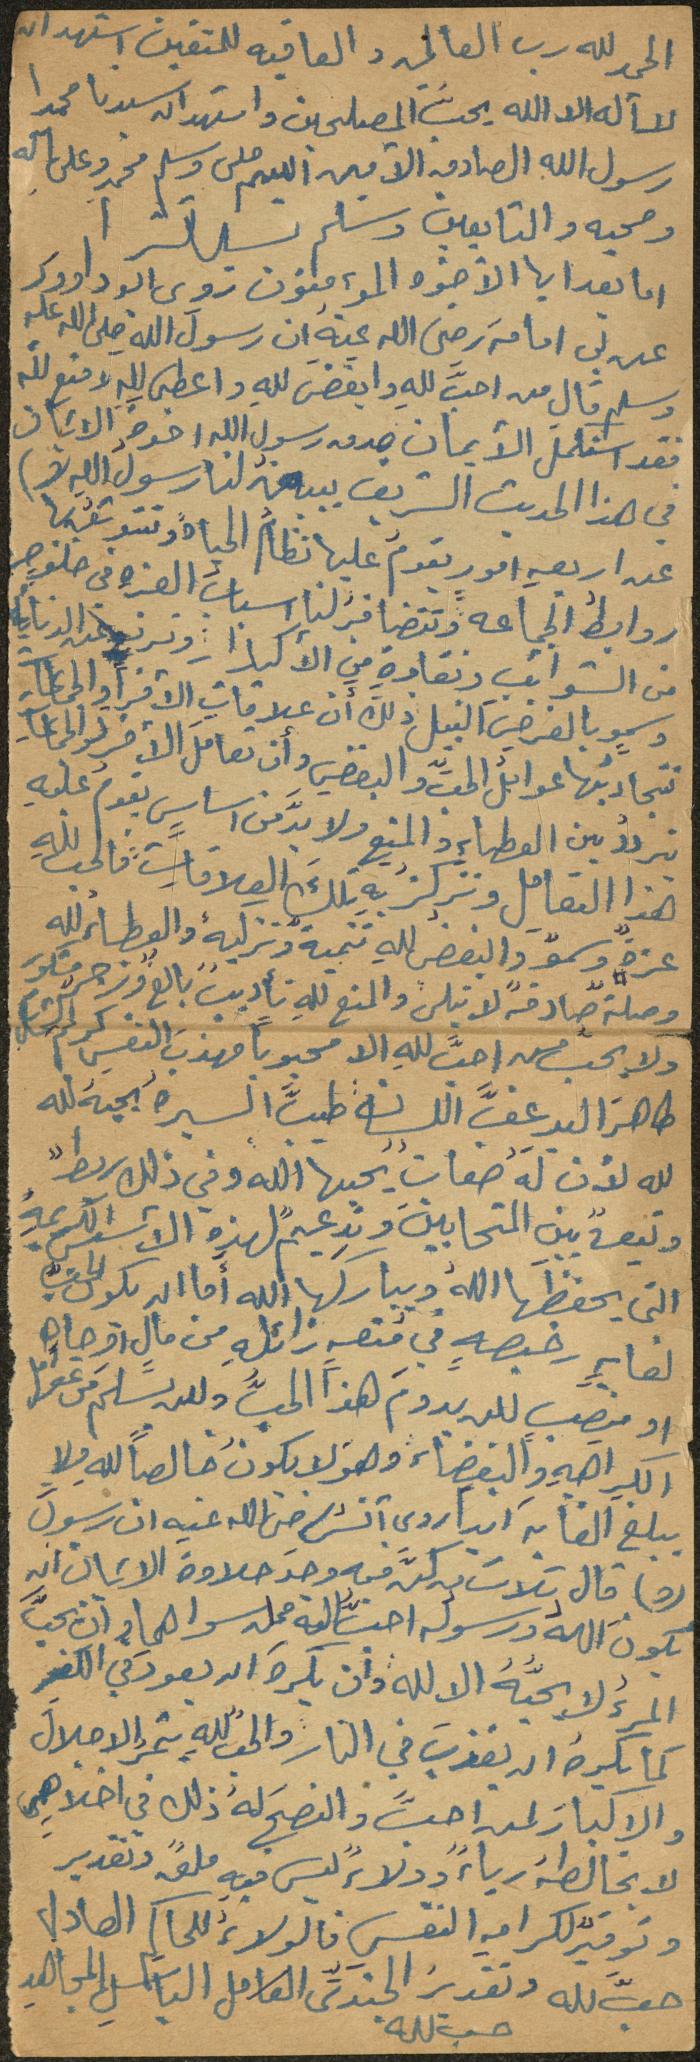 الحمد لله رب العالمين والعاقبه للمتقين اشهد ان
لا اله الا الله يحبُّ المصلحين واشهد ان سيدنا محمدا
رسول الله الصادق الامين اللهم صلى وسلم محمدٍ وعلى آله
وصحبه والتابعين وسلم تسليما كثيرا
اما بعد ايها الأخوُه المؤمنون روى ابو داوود
عن ابي امامة رضىَ الله عنهُ ان رسول الله صلى الله عليه
وسلم قال من احبَّ للهِ وابغضَ للهِ واعطى للهِ ومنع للهِ
فقد استكمل الأيمان صدق رسول الله اخوة الايمان
في هذا الحديث الشريف يبينُ لنا رسولُ اللهِ (ص)
عن اربعةِ امورٍ يقومُ عليها نظامُ الحياهً وتتوثقُ بها
روابطُ الجماعه وتتضافرُ لنا اسبابُ العزهِ في خلوصٍ
من الشوائب ونقاوةٍ من الأكدار وترفعٍ عن الدنايا
وسموٍ بالغرضِ النبيل ذلك أن علاقاتِ الأفرادِ والجماعاتِ
تتجاذبُها عواملُ الحبِّ والبغضِ وأن تعامل الأفراد والجماعاتِ
يترددُ بين العطاءِ والمنعِ ولا بدَّ من اساسٍ يقومُ عليهِ
هذا التعامل وتتركزُ بهِ تلكَ العلاقاتِ فالحب للهِ
عزةٌ وسموٌ والبغضُ للهِ تنميةٌ وتزكيةٌ والعطاءُ للهِ
وصلةٌ صادقهٌ لا تبلى والمنع للهِ تأديبٌ بالغٌ وزجرٌ
ولا يحبُ من احبَّ للهِ الا محبوباً مهذبَ النفسِ كريمَ
طاهرَ اليدِ عفَّ اللسان طيبَّ السيرهَ يحبهُ لله
لله لأن لهُ صفاتٌ يحبها الله وفي ذلك ربطٌ
بين المتحابينَ وتدعيمٌ لهذهِ الأسسِ الكريمةِ
التي يحفظُها اللهُ ويباركها الله أما ان يكونَ الحبُّ
لغايهٍ رخيصهٍ في متعهٍ زائلهٍ من مالٍ او جاهٍ
او منصبٍ فلن يدومَ هذا الحبُّ ولن يسلمَ من عوامل
الكراهيهِ والبغضاء وهو لا يكونُ خالصاً لله ولا
يبلغ الغايهَ ابدا روى أنسُ رضىَ الله عنه ان رسولَ
(ص) قال ثلاث من كنَّ فيه وجدَ حلاوةَ الايمان أن
يكونَ اللهُ ورسولُه احبَّ اليه مما سواهما وأن يحبَّ
المرءَ لا يحبُّهُ الا لله وأن يكرهَ ان يعودَ في الكفرِ
كما يكرهُ ان يقذفَ في النار والحبُ للهِ يثمرُ الاجلالَ
والاكبارَ لمن احبَّ والنصحَ لهُ ذلك في اخلاصٍ
لا يخالطهُ رياءٌ وولاءٌ ليس فيهِ ملقٌ وتقدير
وتوقيرٌ لكرامهِ النفسِ فالولاءُ للحاكمِ العادلِ
حبٌّ لله وتقديرُ الجنديِّ العامل الباسلِ المجاهدِ
حبٌ لله